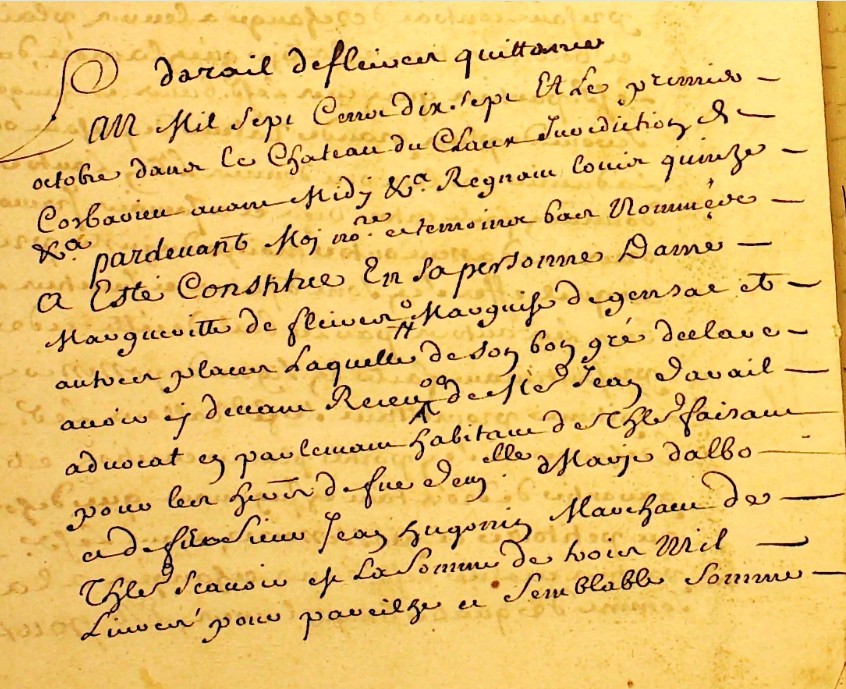 darail de fleires quittance
L'AN Mil sept Cens dix sept Et Le premier
octobre dans le Chateau du Claux Jurediction de
Corbarieu avant Midy &a. Regnant louis quinze
&a pardevant Moy nore. et temoins bas Nommés
A Esté Constitue En sa personne Dame
Margueritte de fleires Marquise de gensac et
autres places Laquelle de son bon gré declare
avoir cy devant Receu de Me Jean darail
advocat en parlemant habitant de Thle faisant
pour les hers de fue demelle Marye dalbo
et de feu Sieur Jean hugonin Marchant de
Thle Scavoir est La Somme de trois Mil
Livres pour pareilhe et Semblable Somme